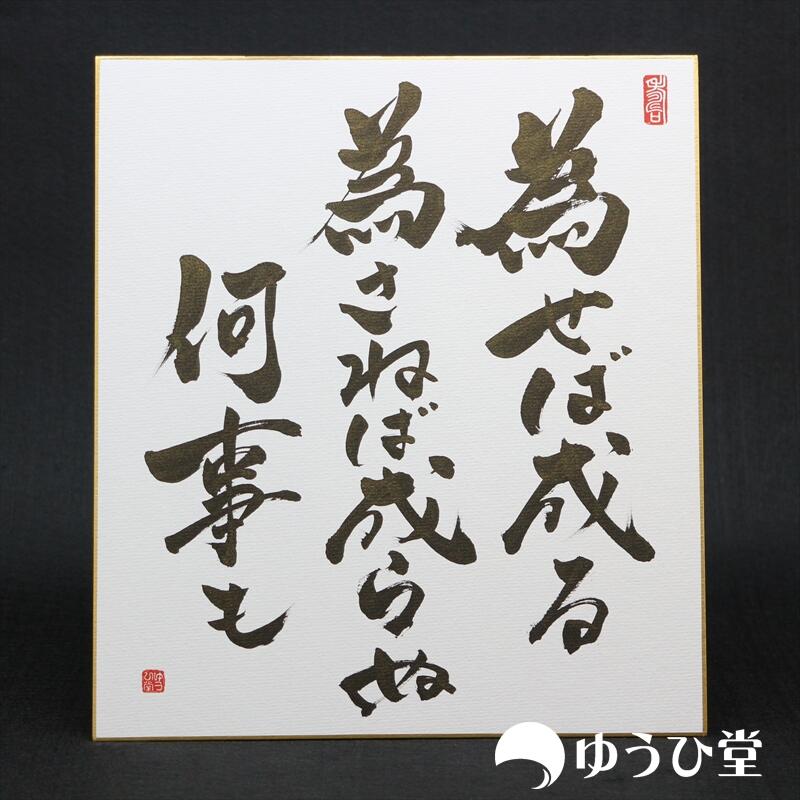 為せば成る
為さねば成らぬ
何事も
ゆうひ堂
ゆうひ堂